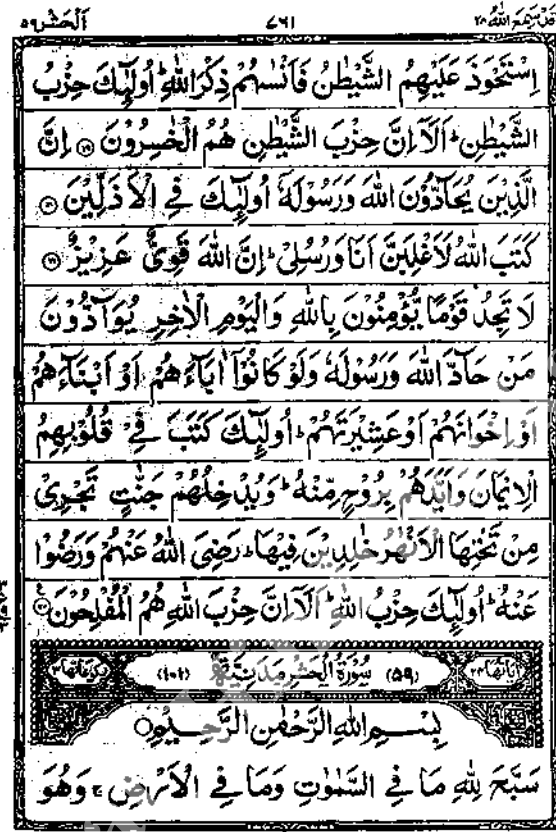 قد سمع الله ٢٨ ٧٦١ اَلْحَشْر ٥٩
اِسْتَحْوَذَ عَلَيْهِمُ الشَّيْطٰنُ فَاَنْسٰىهُمْ ذِكْرَ اللّٰهِ ؕ اُولٰٓئِكَ حِزْبُ
الشَّيْطٰنِ ؕ اَلَاۤ اِنَّ حِزْبَ الشَّيْطٰنِ هُمُ الْخٰسِرُوْنَ ۝۱۹ اِنَّ
الَّذِيْنَ يُحَآدُّوْنَ اللّٰهَ وَرَسُوْلَهٗۤ اُولٰٓئِكَ فِي الْاَذَلِّيْنَ ۝۲۰
كَتَبَ اللّٰهُ لَاَغْلِبَنَّ اَنَا وَرُسُلِيْ ؕ اِنَّ اللّٰهَ قَوِيٌّ عَزِيْزٌ ۝۲۱
لَا تَجِدُ قَوْمًا يُّؤْمِنُوْنَ بِاللّٰهِ وَالْيَوْمِ الْاٰخِرِ يُوَآدُّوْنَ
مَنْ حَآدَّ اللّٰهَ وَرَسُوْلَهٗ وَلَوْ كَانُوْۤا اٰبَآءَهُمْ اَوْ اَبْنَآءَهُمْ
اَوْ اِخْوَانَهُمْ اَوْ عَشِيْرَتَهُمْ ؕ اُولٰٓئِكَ كَتَبَ فِيْ قُلُوْبِهِمُ
الْاِيْمَانَ وَاَيَّدَهُمْ بِرُوْحٍ مِّنْهُ ؕ وَيُدْخِلُهُمْ جَنّٰتٍ تَجْرِيْ
مِنْ تَحْتِهَا الْاَنْهٰرُ خٰلِدِيْنَ فِيْهَا ؕ رَضِيَ اللّٰهُ عَنْهُمْ وَرَضُوْا
عَنْهُ ؕ اُولٰٓئِكَ حِزْبُ اللّٰهِ ؕ اَلَاۤ اِنَّ حِزْبَ اللّٰهِ هُمُ الْمُفْلِحُوْنَ ۝۲۲
اٰيَاتُهَا ٢٤ (٥٩) سُوْرَةُ الْحَشْرِ مَدَنِيَّةٌ (١٠١) رُكُوْعَاتُهَا ٣
بِسْمِ اللّٰهِ الرَّحْمٰنِ الرَّحِيْمِ
سَبَّحَ لِلّٰهِ مَا فِي السَّمٰوٰتِ وَمَا فِي الْاَرْضِ ۚ وَهُوَ